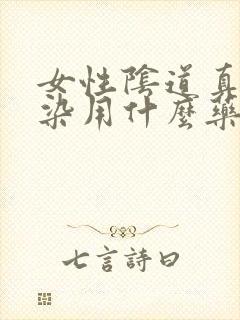 女性陰道真
染用什麼藥
七言詩曰